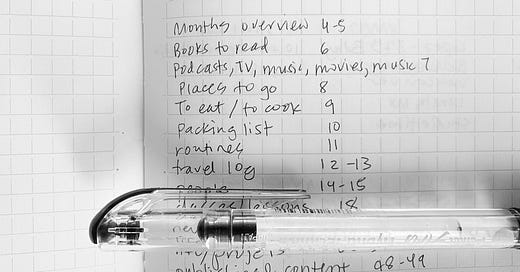 Months overview 4-5
Books to read 6
Podcasts, TV, music, movies, music 7
Places to go 8
To eat / to cook 9
Packing list 10
routines 11
travel log 12-13
people 14-15
lessons 18
content 48-49